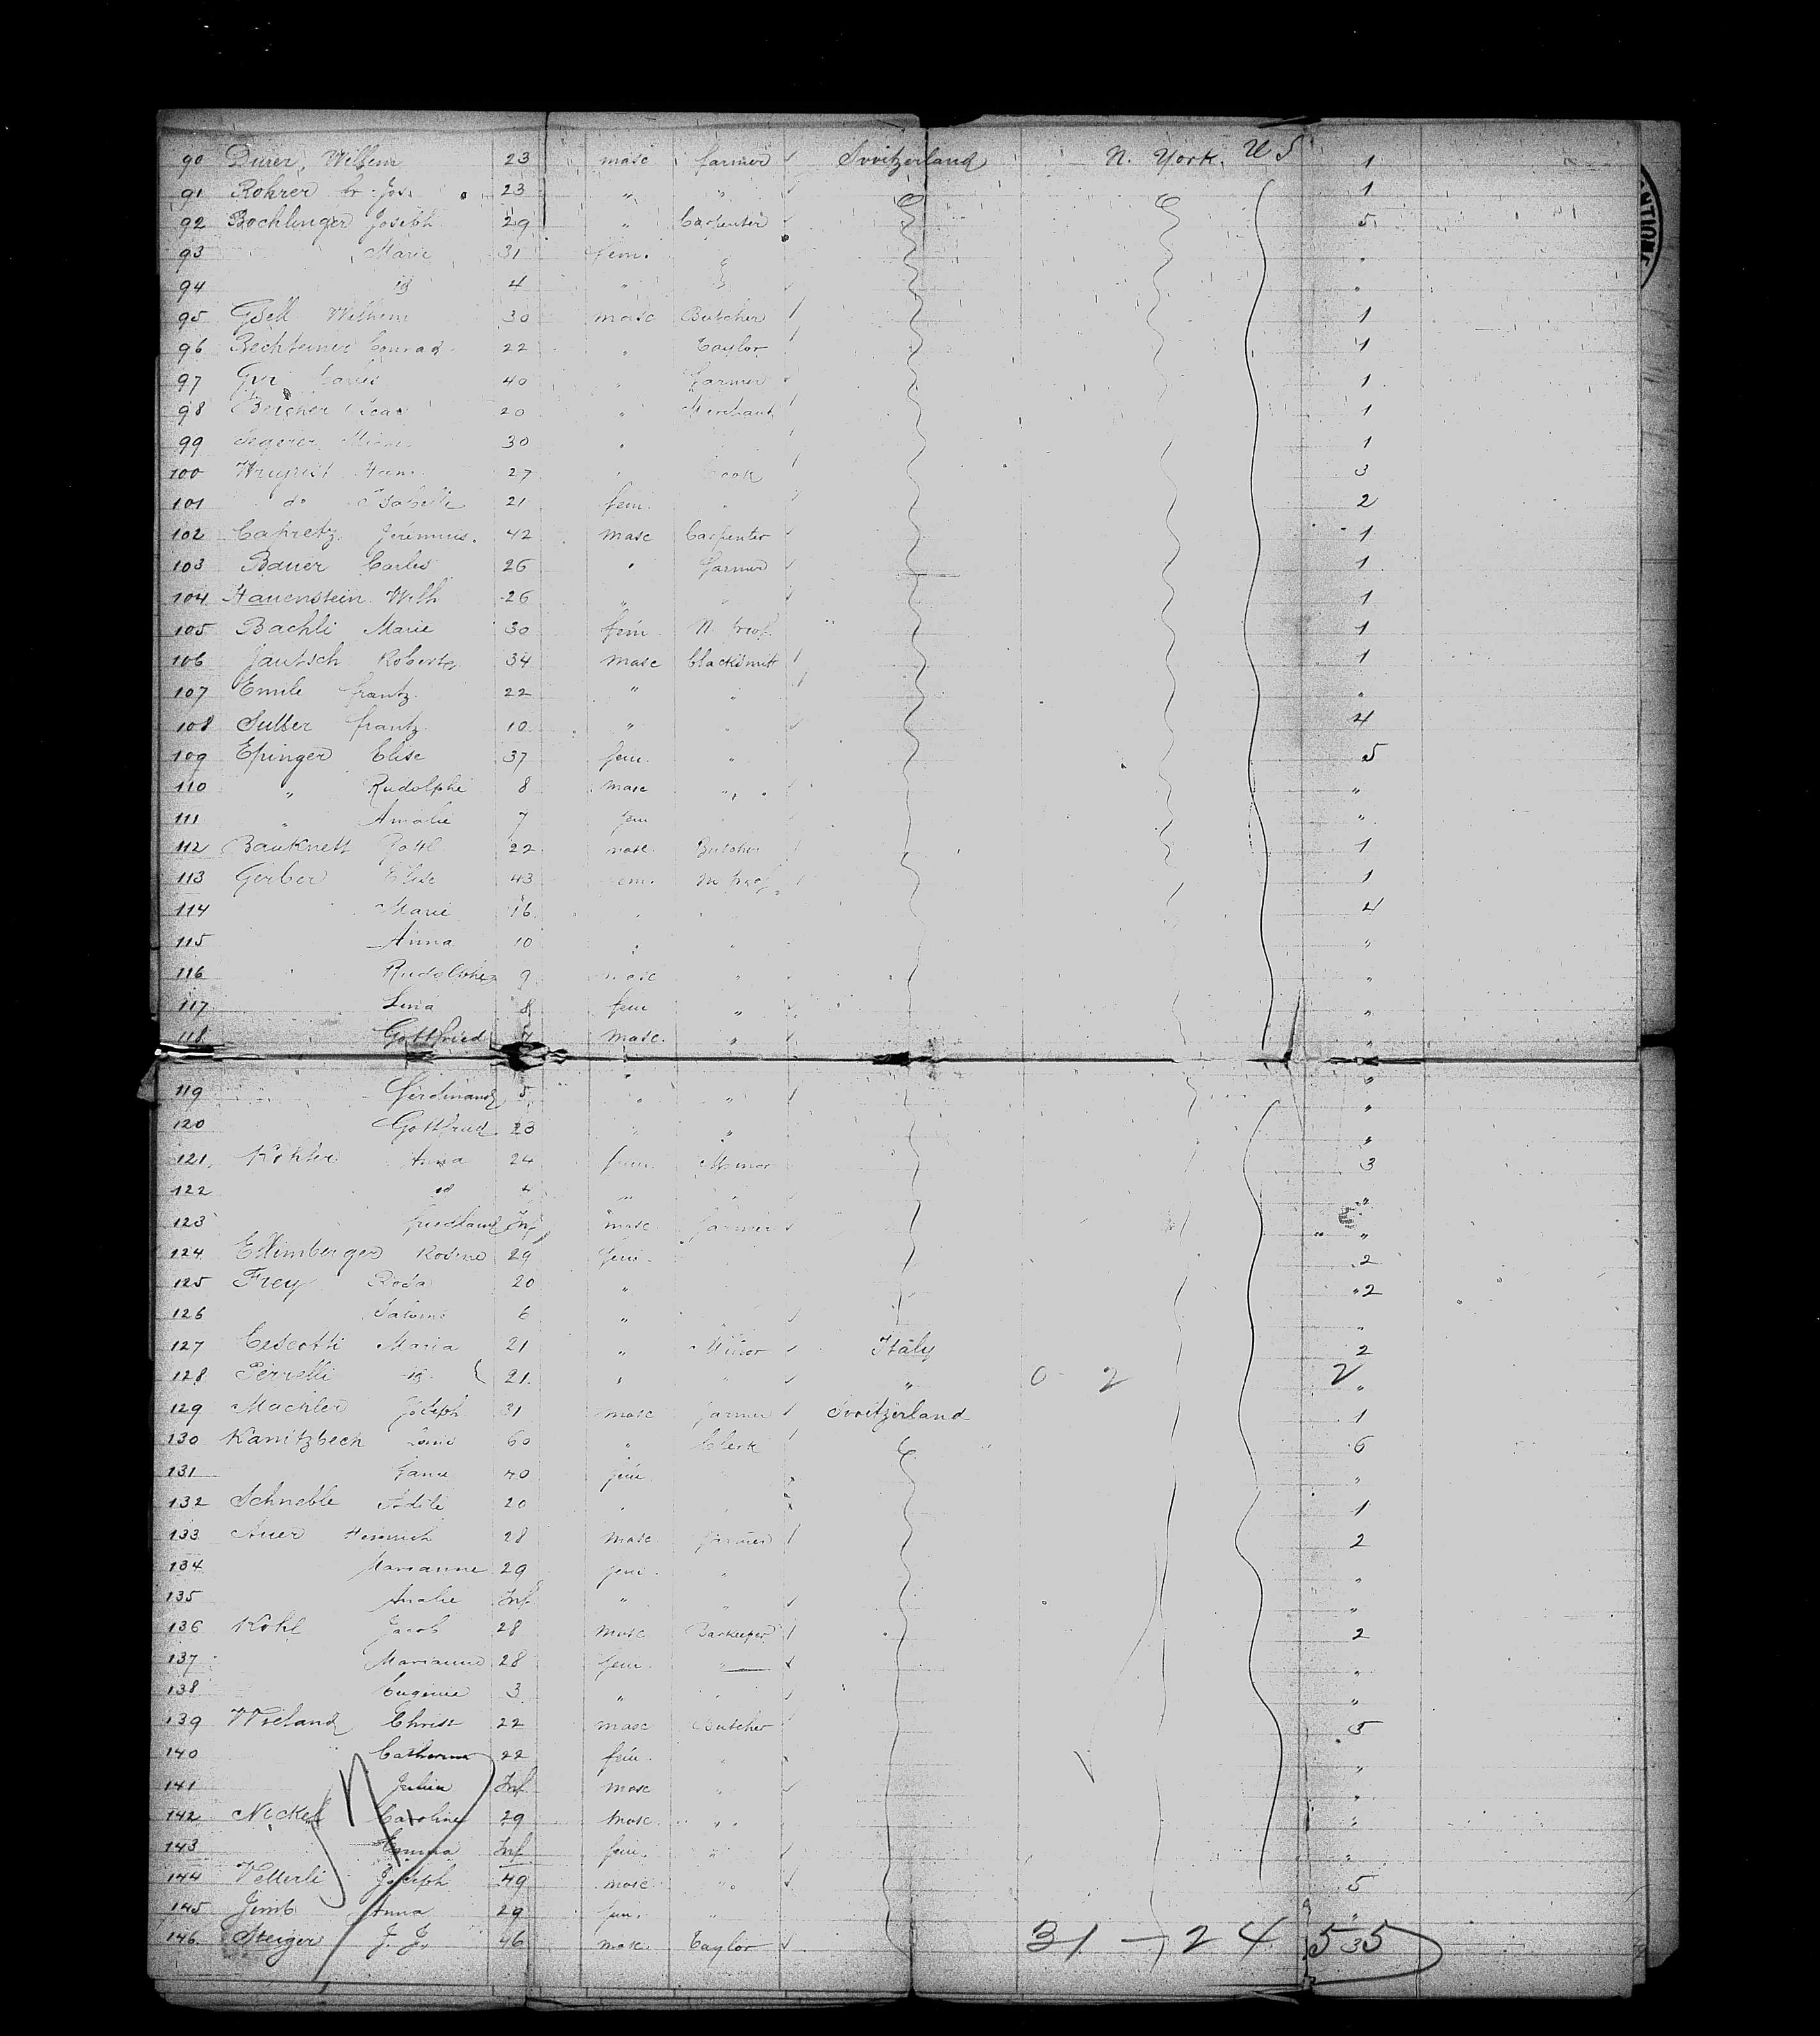 90 Durer, Wilhem 23 masc farmer Switzerland N. York. U S 1
91 Rohrer Jos. 23 " " 1
92 Bochlinger Joseph 29 " Carpenter 5
93 Marie 31 fem. "
94 id 4 " "
95 Gsell Wilhem 30 masc Butcher 1
96 Conrad 22 " Taylor 1
97 Carles 40 " farmer 1
98 20 " Merchant 1
99 Segerer 30 " 1
100 27 " Cook 3
101 do Isabelle 21 fem. " 2
102 Capretz Jeremias. 42 masc Carpenter 1
103 Bauer Carles 26 " farmer 1
104 Hauenstein Wilh 26 " " 1
105 Bachli Marie 30 fem. N. prof. 1
106 Jautsch Robert 34 masc blacksmit 1
107 Emile frantz. 22 " " "
108 Sutter frantz 10 " " 4
109 Epinger Elise 37 fem. " 5
110 " Rudolphe 8 masc " "
111 " Amalie 7 fem " "
112 Bauknett Gottl 22 masc. Butcher 1
113 Gerber Elise 43 fem. no prof. 1
114 Marie 16 " " 4
115 Anna 10 " " "
116 Rudolphe 9 masc " "
117 Lina 8 fem " "
118 Gottfried 7 masc. " "
119 Ferdinand 5 " " "
120 Gottfried 23 " " "
121 Kohler Anna 24 fem. Minor 3
122 id 4 " " "
123 Inf masc farmer "
124 Rosine 29 fem. 2
125 Frey Rosa 20 " 2
126 Salomé 6 " "
127 Cescotti Maria 21 " Minor Italy 2
128 Perrelli id 21 " " " 0 2 2 "
129 Machler Joseph 31 masc farmer Switzerland 1
130 Kanitzbech Louis 60 " Clerk 6
131 40 fem "
132 Schneble Adile 20 " 1
133 Auer Heinrich 28 masc farmer 2
134 Marianne 29 fem. " "
135 Amalie Inf " " "
136 Kohl Jacob 28 masc Barkeeper 2
137 Marianne 28 fem. " "
138 Eugenie 3 " " "
139 Wieland Christ 22 masc Butcher 5
140 Catherine 22 fem. " "
141 Julien Inf masc " "
142 Nickel Caroline 29 masc " "
143 Emma Inf fem. " "
144 Vetterli Joseph 49 masc " 5
145 Jimb Anna 29 fem. " "
146 Steiger J. J. 46 masc. Taylor 3
31 - 24 55